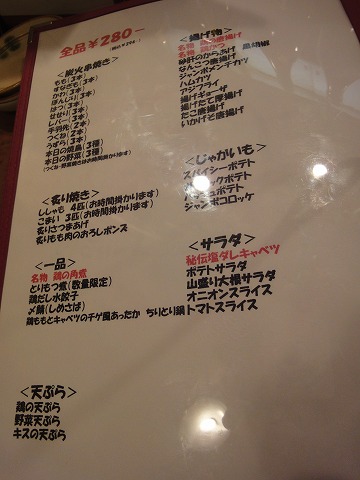 全品￥280−
<炭火串焼き>
もも(3本)
すなぎも(3本)
かわ(3本)
ぼんじり(3本)
はつ(3本)
せせり(3本)
レバー(3本)
手羽先(2本)
つくね(2本)
うずら(3本)
本日の焼鳥(3種)
本日の野菜(3種)
(つくね・野菜焼きはお時間掛かります)
<炙り焼き>
ししゃも 4匹(お時間掛かります)
こまい 3匹(お時間掛かります)
炙りさつまあげ
炙りもも肉のおろしポンズ
<一品>
名物 鶏の角煮
とりもつ煮(数量限定)
鶏だし水餃子
〆鯖(しめさば)
鶏ももとキャベツのチゲ風あったか ちりとり鍋
<天ぷら>
鶏の天ぷら
野菜天ぷら
キスの天ぷら
<揚げ物>
名物
名物 鶏かつ
砂肝のからあげ 黒胡椒
なんこつ唐揚げ
ジャンボメンチカツ
ハムカツ
アジフライ
揚げギョーザ
揚げたて厚揚げ
たこ唐揚げ
いかげそ唐揚げ
<じゃがいも>
スパイシーポテト
ックポテト
ュポテト
ジャンボコロッケ
<サラダ>
秘伝塩ダレキャベツ
ポテトサラダ
山盛り大根サラダ
オニオンスライス
トマトスライス